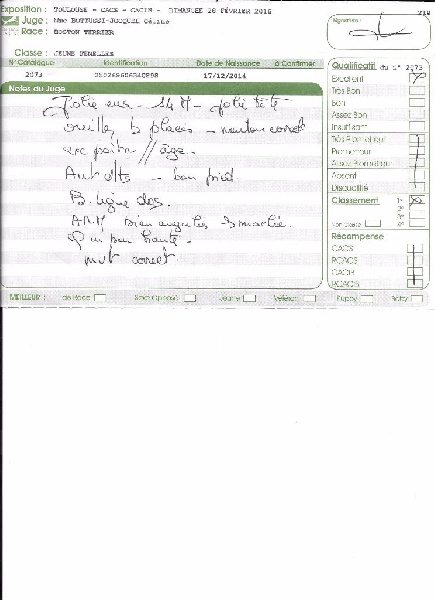 Exposition : TOULOUSE - CACS - CACIB - DIMANCHE 28 FÉVRIER 2016
Juge : Mme BOTTUSSI-JOCQUEL Céline
Race : BOSTON TERRIER
Signature :
Classe : JEUNE FEMELLES
N° Catalogue Identification Date de Naissance à Confirmer
2073 17/12/2014
Notes du Juge
Jolie - 14 M - jolie tête
oreilles b placées - menton correct
poitr // âge.
Ant - bon pied
B. ligne dos.
bien angulés - B musclée.
Q un peu haute.
mvt correct
Qualificatif du n° 2073
Excellent
Très Bon
Bon
Assez Bon
Insuffisant
Très Prometteur
Prometteur
Assez Prometteur
Absent
Disqualifié
Classement
Non Classé
Récompense
CACS
RCACS
CACIB
RCACIB
MEILLEUR : de Race Sexe Opposé Jeune Vétéran Puppy Baby